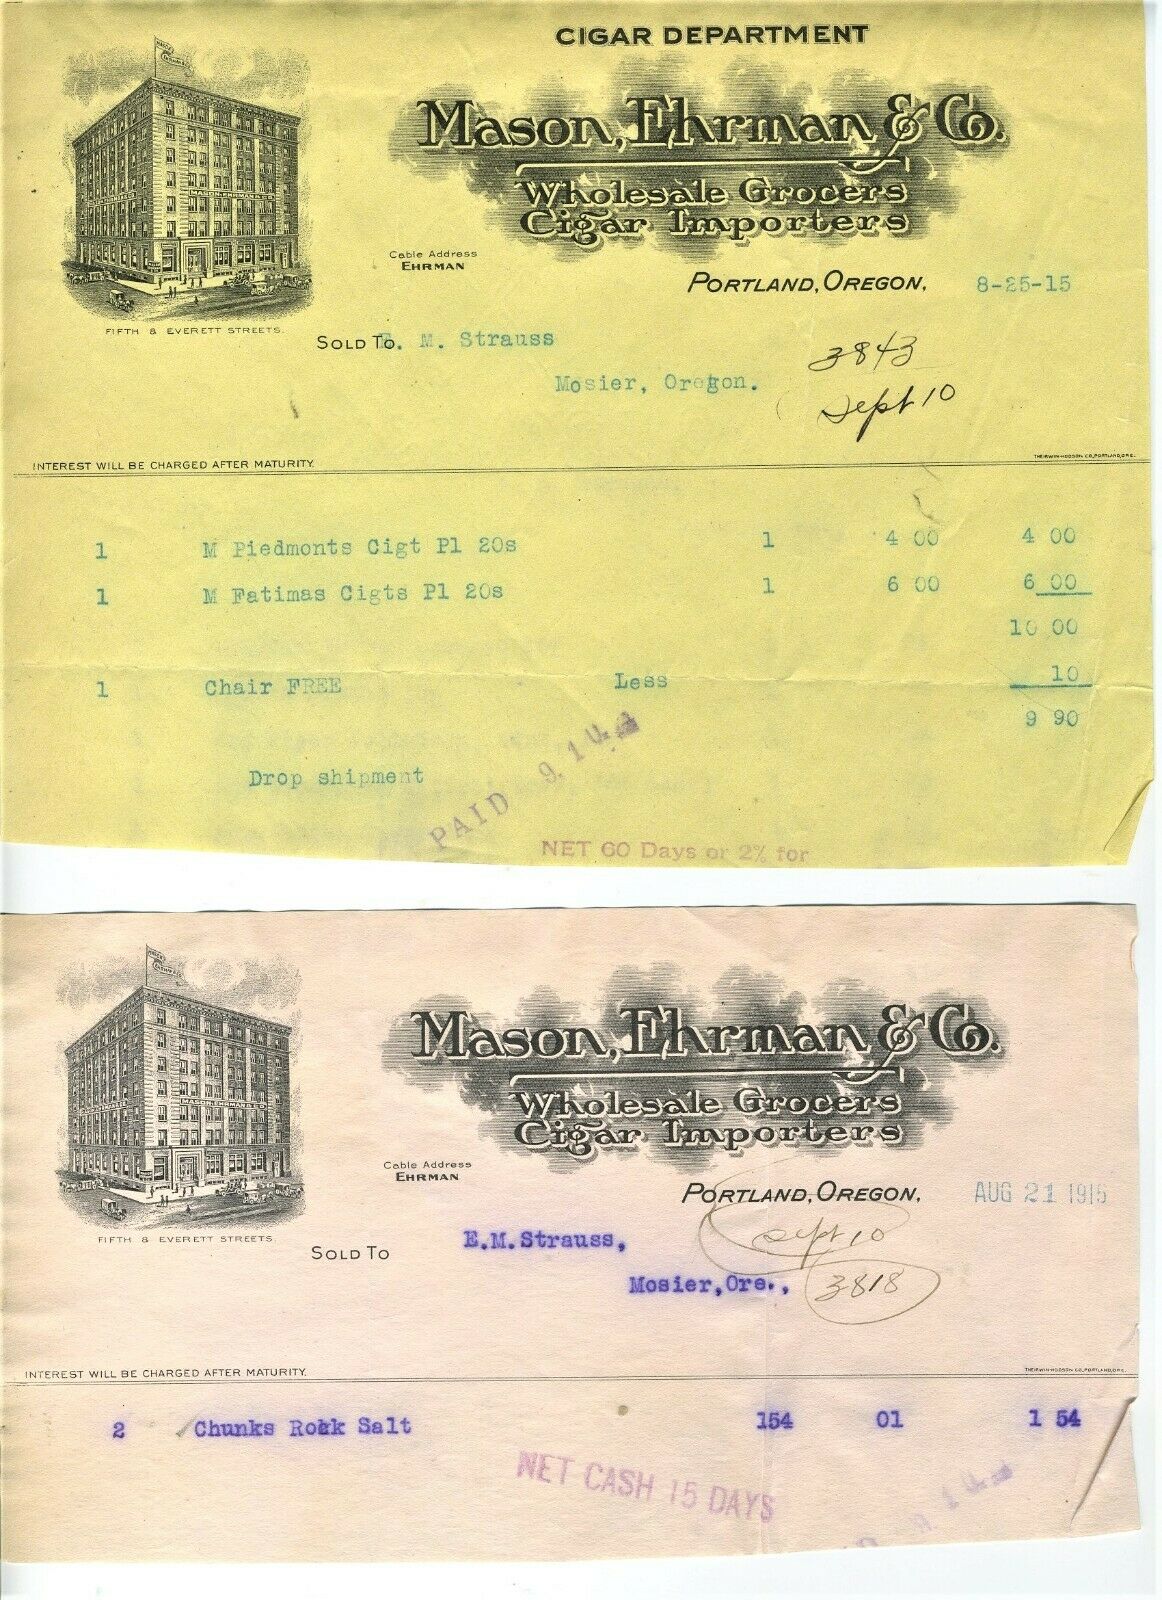 CIGAR DEPARTMENT
Mason, Ehrman & Co.
Wholesale Grocers
Cigar Importers
MASON, EHRMAN & CO
Cable Address
EHRMAN
PORTLAND, OREGON, 8-25-15
FIFTH & EVERETT STREETS.
SOLD TO E. M. Strauss
Mosier, Oregon.
3843
Sept 10
INTEREST WILL BE CHARGED AFTER MATURITY.
THE IRWIN-HODSON CO, PORTLAND, ORE.
1 M Piedmonts Cigt Pl 20s 1 4 00 4 00
1 M Fatimas Cigts Pl 20s 1 6 00 6 00
10 00
1 Chair FREE Less 10
9 90
Drop shipment
PAID 9. 14
NET 60 Days or 2% for
Mason, Ehrman & Co.
Wholesale Grocers
Cigar Importers
MASON, EHRMAN & CO
Cable Address
EHRMAN
PORTLAND, OREGON, AUG 21 1915
FIFTH & EVERETT STREETS.
SOLD TO E.M. Strauss,
Sept 10
Mosier, Ore., 3818
INTEREST WILL BE CHARGED AFTER MATURITY.
THE IRWIN-HODSON CO, PORTLAND, ORE.
2 Chunks Rock Salt 154 01 1 54
NET CASH 15 DAYS